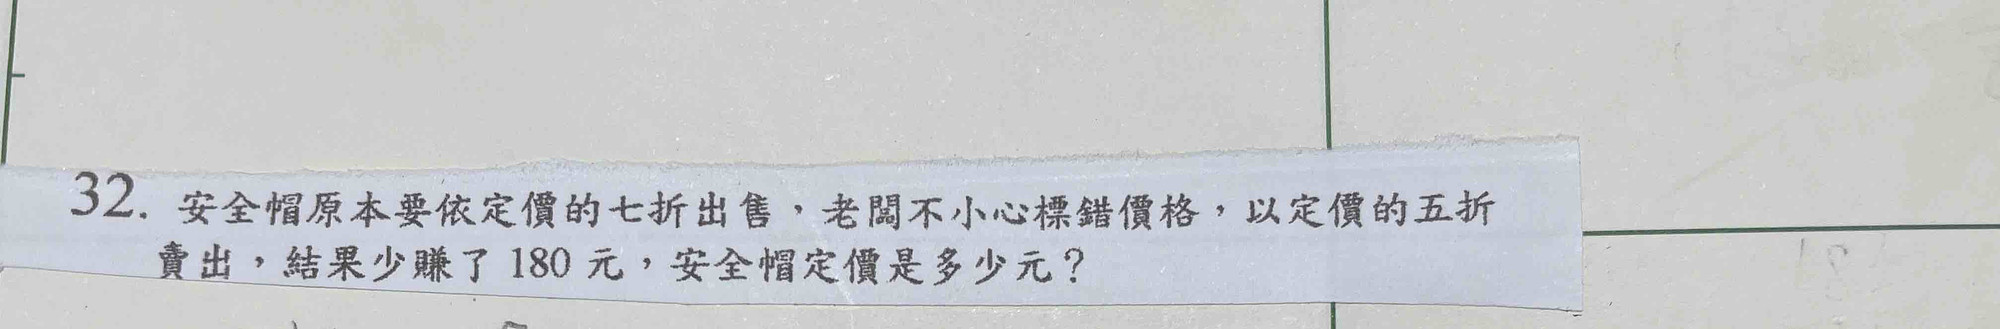 32. 安全帽原本要依定價的七折出售，老闆不小心標錯價格，以定價的五折
賣出，結果少賺了 180 元，安全帽定價是多少元？